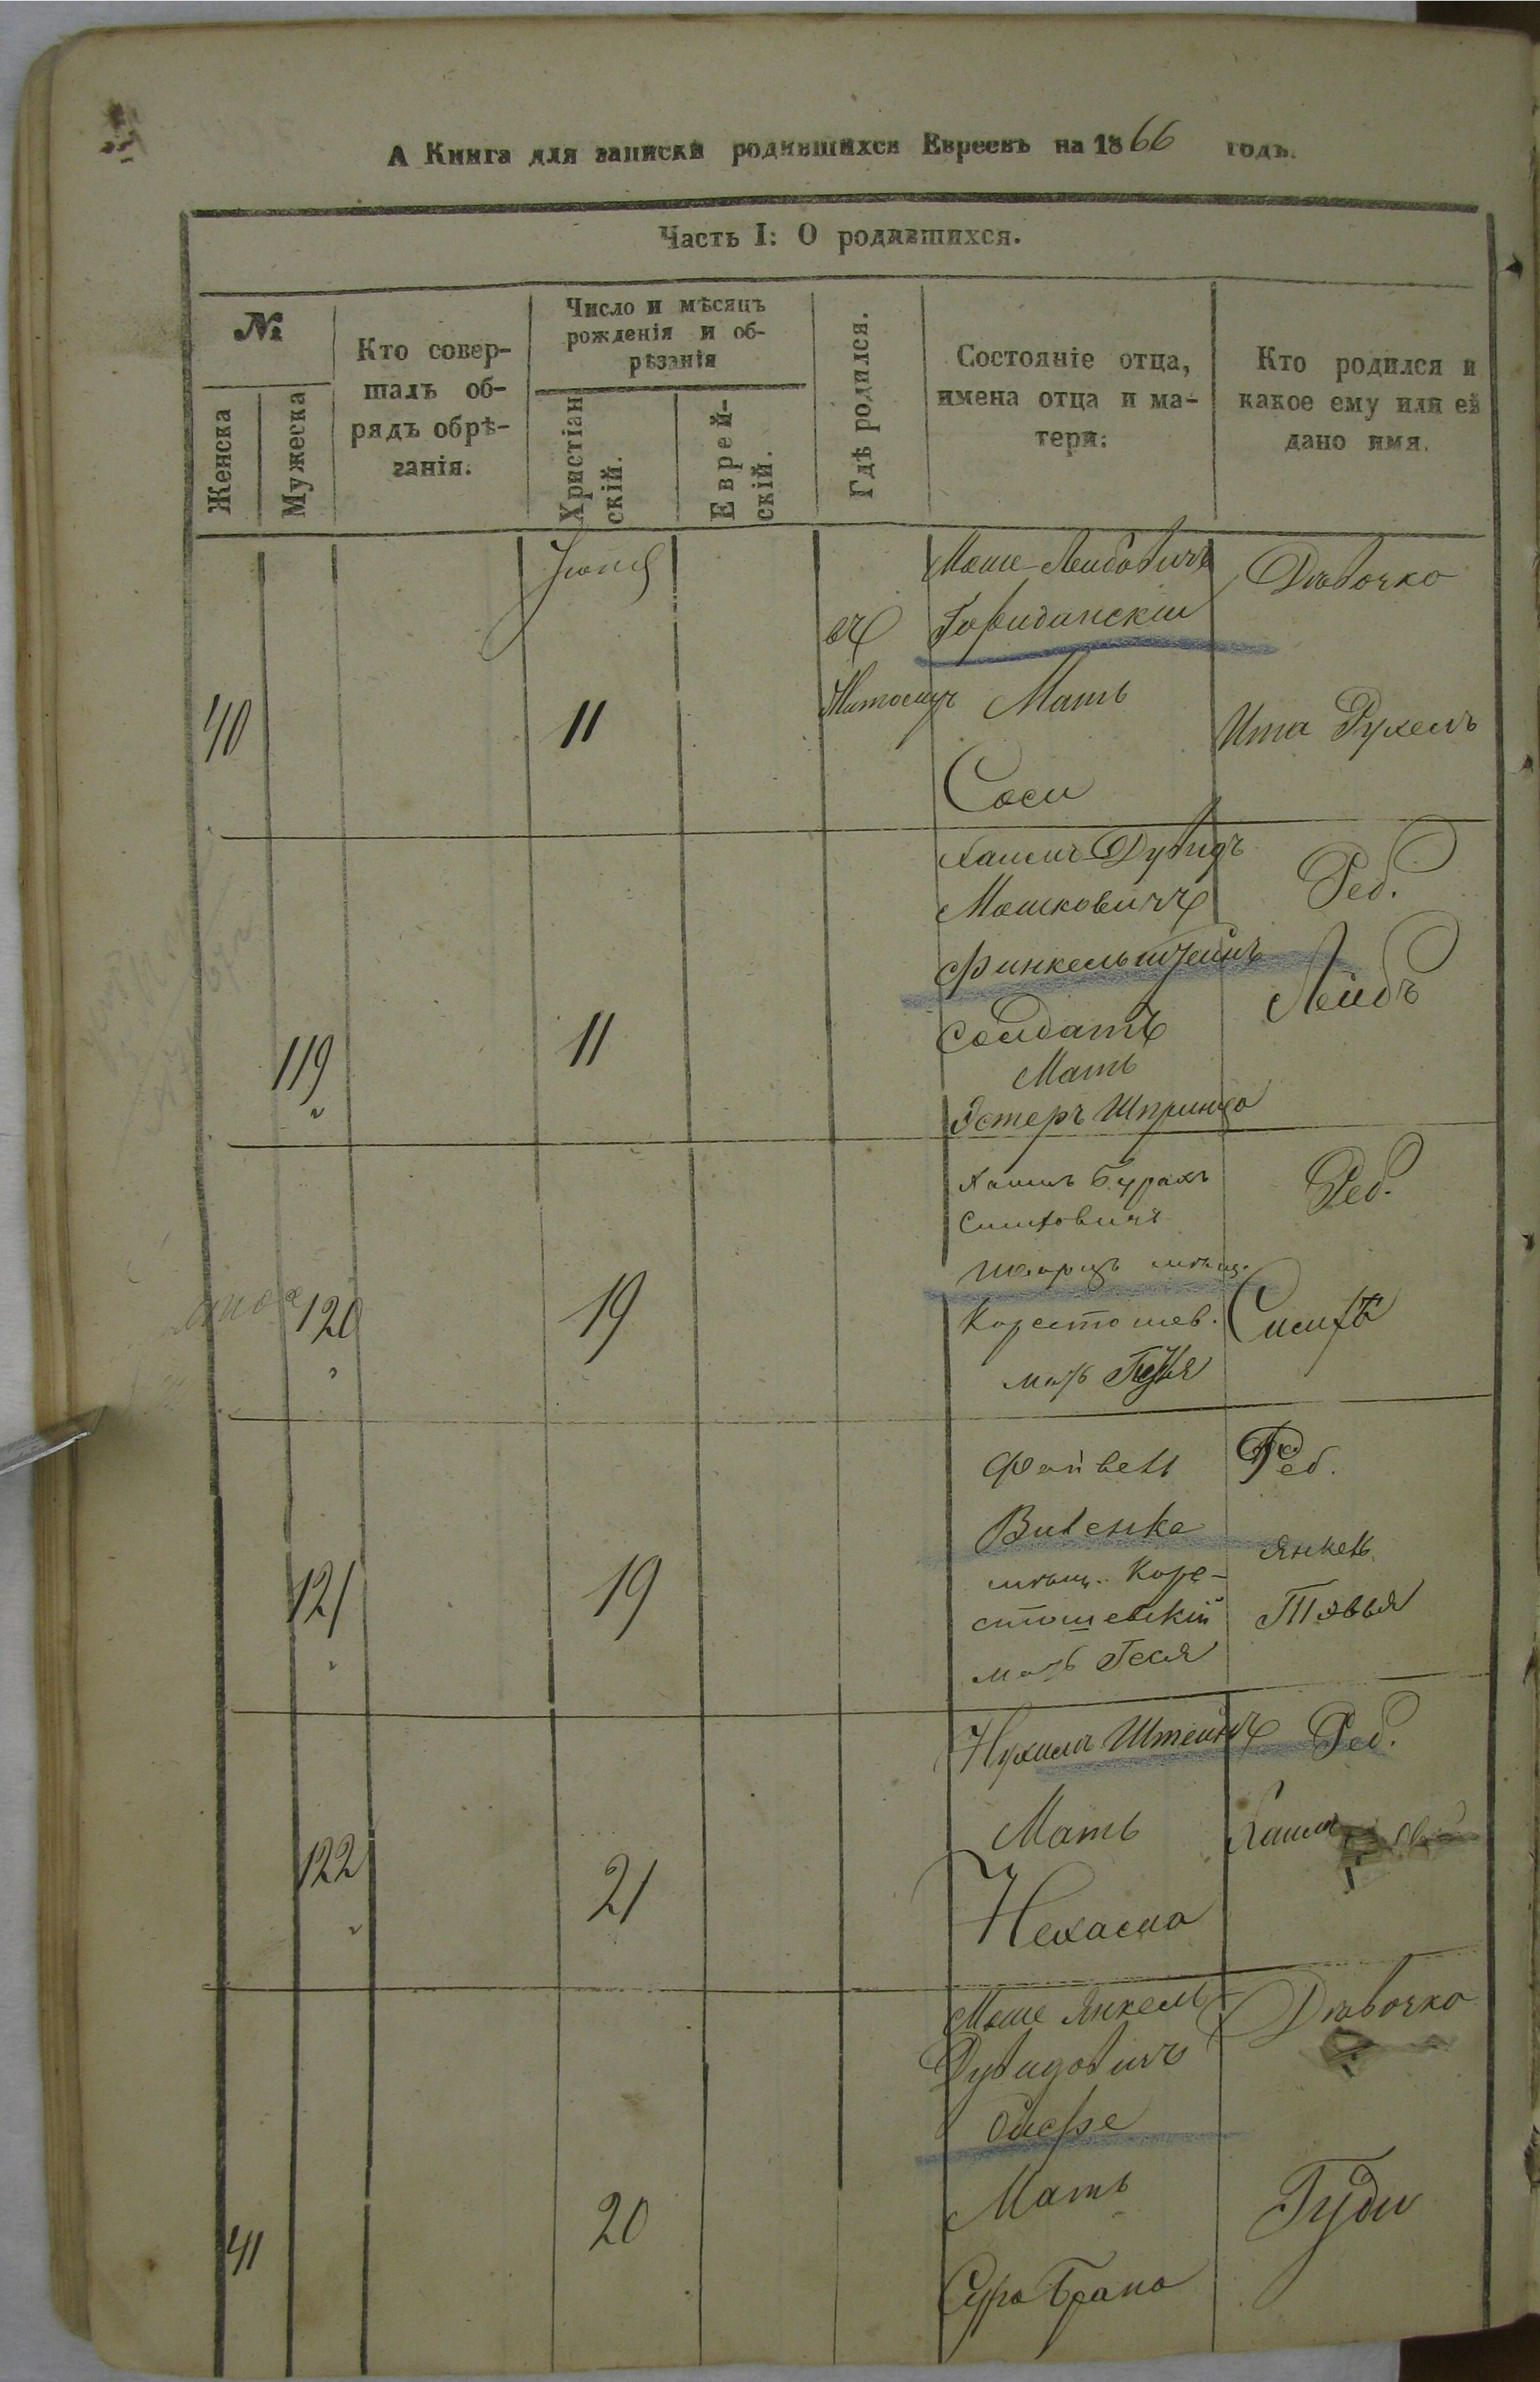 А Книга для записки родившихся Евреевъ на 1866 годъ.
Часть I: О родившихся.
№
Женска
Мужеска
Кто совер-
шалъ об-
рядъ обрѣ-
занія.
Число и мѣсяцъ
рожденія и об-
рѣзанія
Христіан
скій.
Еврей-
скій.
Гдѣ родился.
Состояніе отца,
имена отца и ма-
тери:
Кто родился и
какое ему или ей
дано имя.
40
11
въ
Житомиръ
Моше Лейбовичъ
Мать
Соси
Дѣвочко
Ита Рухель
119
11
Хаимъ Дувидъ
Мошковичъ
Финкельштейнъ
Солдатъ
Мать
Эстеръ Шпринца
Реб.
Лейбъ
120
19
Хаимъ Бурахъ
Симховичъ
Шварцъ мѣщ.
Коростошев.
мать
Реб.
Симха
121
19
Файвель
Виленка
мѣщ. Коро-
стошевскій
мать Геся
Реб.
Янкель
Товья
122
21
Нухимъ Штейнъ
Мать
Нехама
Реб.
Хаимъ
41
20
Моше Янкель
Дувидовичъ
Мать
Сура Брана
Дѣвочко
Гуди